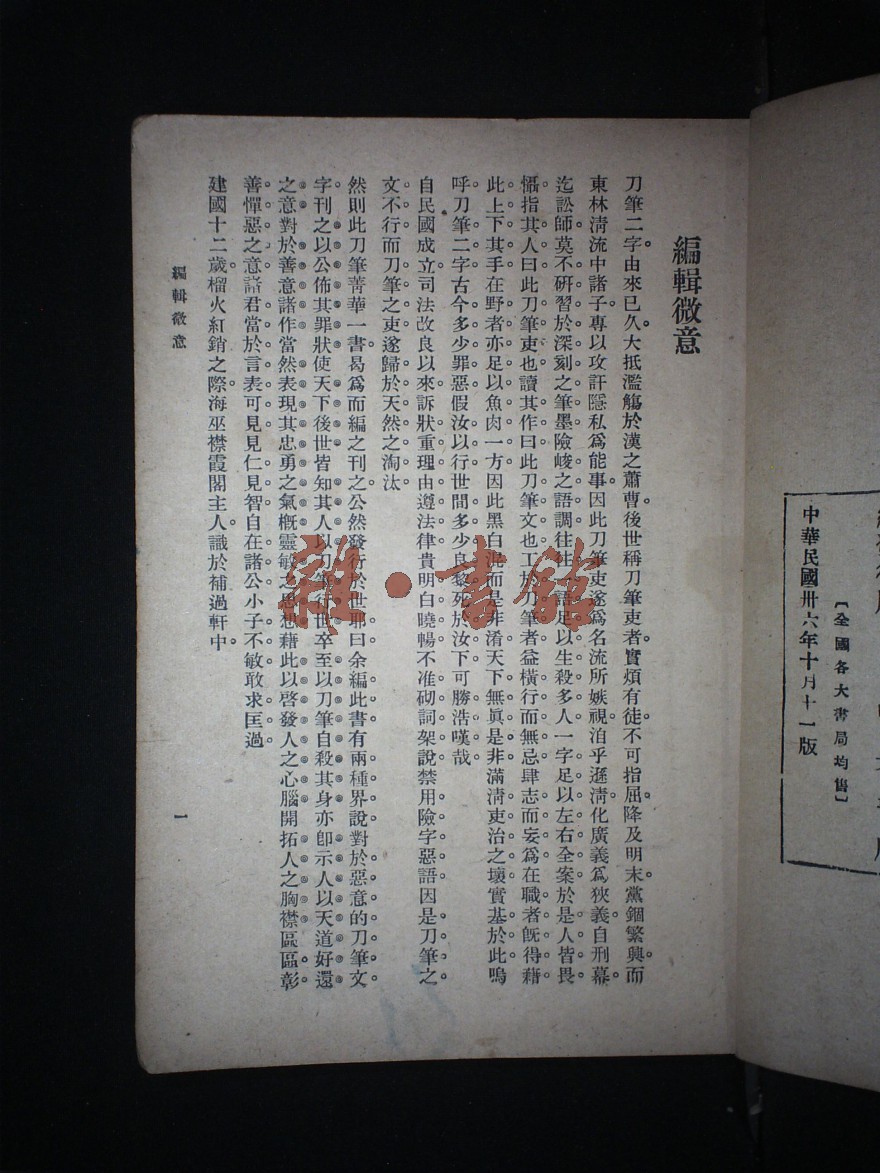 編輯微意
刀筆二字。由來已久。大抵濫觴於漢之蕭曹。後世稱刀筆吏者。實煩有徒。不可指屈。降及明末。黨錮繁興。而
東林淸流中諸子。專以攻訐隱私爲能事。因此刀筆吏遂爲名流所嫉視。洎乎遜淸。化廣義爲狹義。自刑幕。
迄訟師。莫不研習於深刻之筆墨。險峻之語調。往往一語足以生殺多人。一字足以左右全案。於是人皆畏
懾。指其人曰。此刀筆吏也。讀其作曰。此刀筆文也。工於刀筆者。益橫行而無忌。肆志而妄爲。在職者旣得藉
此上下其手。在野者亦足以魚肉一方。因此黑白混而是非淆。天下無眞是非。滿淸吏治之壞。實基於此。嗚
呼。刀筆二字。古今多少罪惡。假汝以行。世間多少良黎。死於汝下。可勝浩嘆哉
自民國成立。司法改良以來。訴狀重理由。遵法律。貴明白曉暢。不准砌詞架說。禁用險字惡語。因是刀筆之
文不行。而刀筆之吏。遂歸於天然之淘汰
然則此刀筆菁華一書。曷爲而編之刊之。公然發行於世耶。曰。余編此書。有兩種界說。對於惡意的刀筆文
字。刊之以公佈其罪狀。使天下後世。皆知其人以刀筆行世。卒至以刀筆自殺其身。亦卽示人以天道好還
之意。對於善意諸作。當然表現其忠勇之氣槪。靈敏之思想。藉此以啓發人之心腦。開拓人之胸襟。區區彰
善憚惡之意。諸君當於言表可見。見仁見智。自在諸公。小子不敏。敢求匡過。
建國十二歲。榴火紅銷之際。海巫襟霞閣主人。識於補過軒中。
編輯微意
一
〔全國各大書局均售〕
中華民國卅六年十月十一版
龍·書館